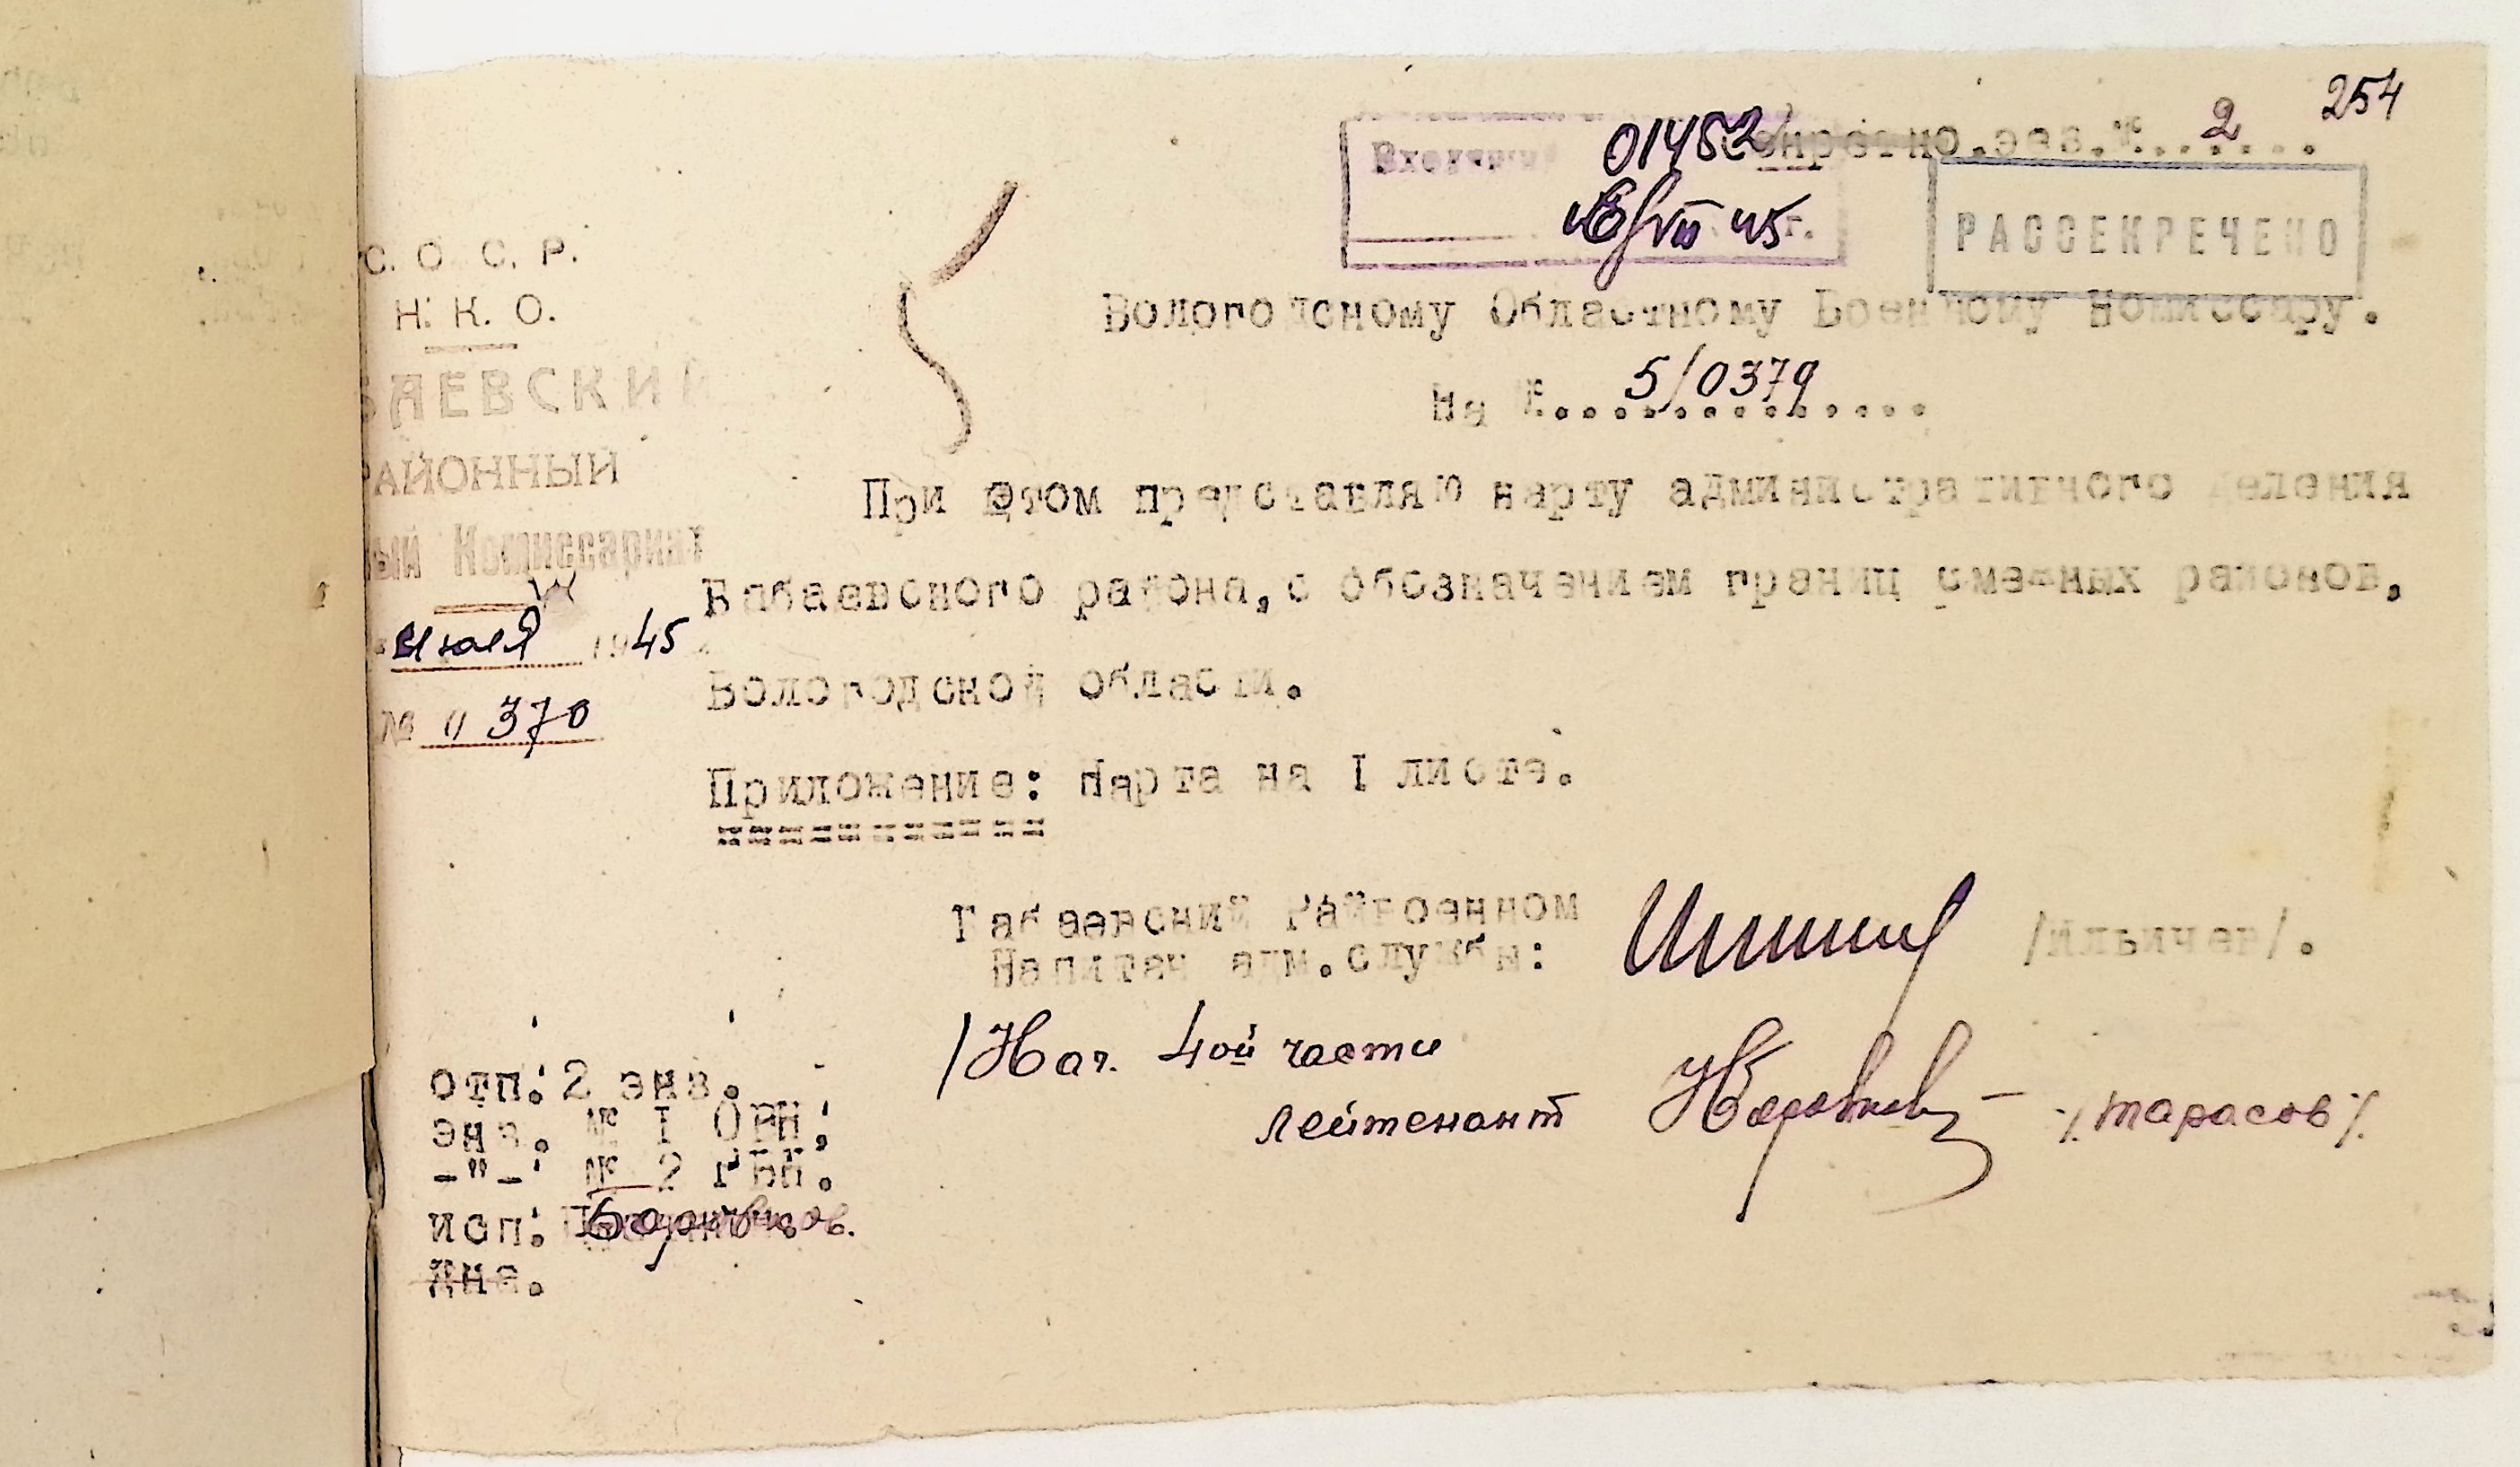 254
Секретно.экз.№..2....
Входящий 01452
VII 45 г.
РАССЕКРЕЧЕНО
С. С. С. Р.
Н. К. О.
БАЕВСКИЙ
РАЙОННЫЙ
ый Комиссариат
июля 1945
№ 0370
Вологодскому Областному Военному Комиссару.
На №..5/0379......
При этом представляю карту административного деления
Бабаевского района,с обозначением границ смежных районов,
Вологодской области.
Приложение: Карта на I листе.
===========
Бабаевский Райвоенком
Капитан адм.службы: /Ильичев/.
/Нач. 4ой части
лейтенант /Тарасов/
отп: 2 экз.
экз. № I ОВК;
-"-' № 2 РВК.
исп: